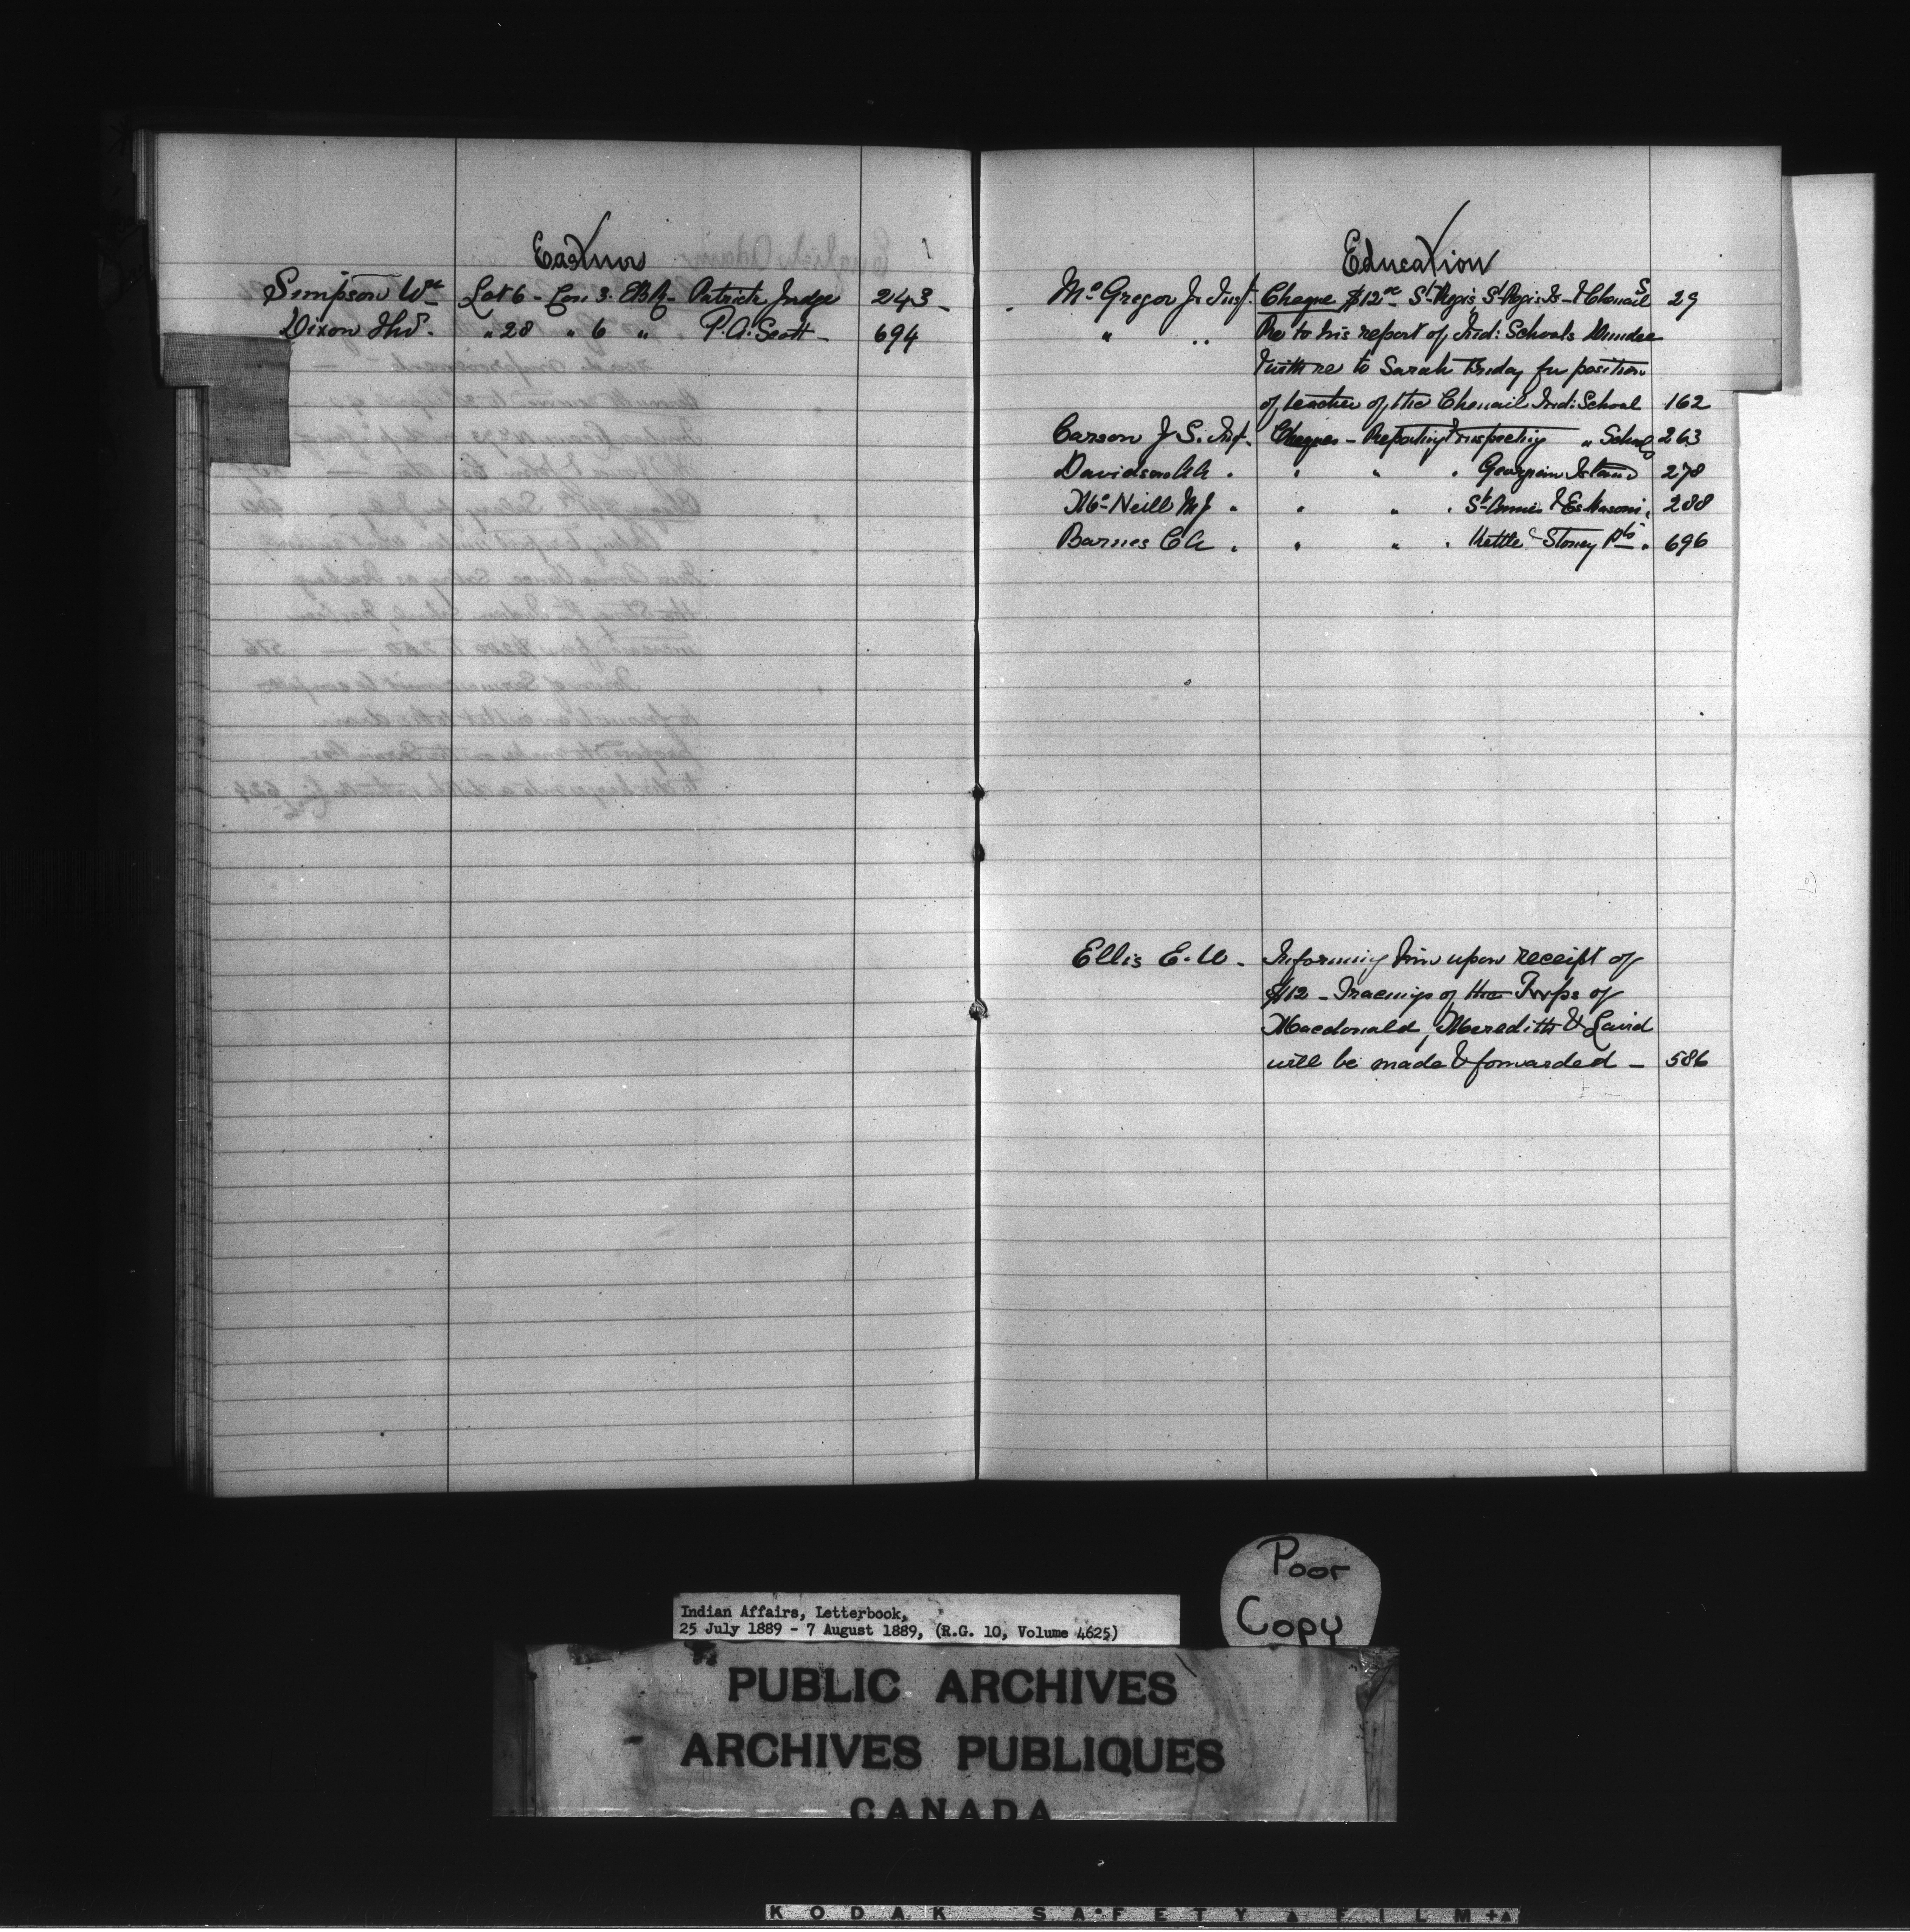 Eastnor
Simpson Wm Lot 6 - Con 3. EBR - Patrick Judge 243 -
Dixon Thos. " 28 " 6 " P. A. Scott - 694
Education
McGregor J. Inst. Cheque $12 00 St Regis, St Regis Is - & Chenail S 29
" " Re to his report of, Ind: Schools Dundee
with re to Sarah for position
of teacher of the Chenail Ind: School 162
Carson J. S. Inst. Cheques - Reporting & inspecting " Schools 263
Davidson . " " . Georgian Island 278
McNeill M J . " " . St Annes & Eskasoni . 288
Barnes C A . " " . Kettle & Stoney Pts . 696
Ellis E. W. - Informing him upon receipt of
$12 - Tracings of the Twps of
Macdonald, Meredith & Laird
will be made & forwarded - 586
Poor
Copy
Indian Affairs, Letterbook,
25 July 1889 - 7 August 1889, (R.G. 10, Volume 4625)
PUBLIC ARCHIVES
ARCHIVES PUBLIQUES
CANADA
KODAK SAFETY FILM